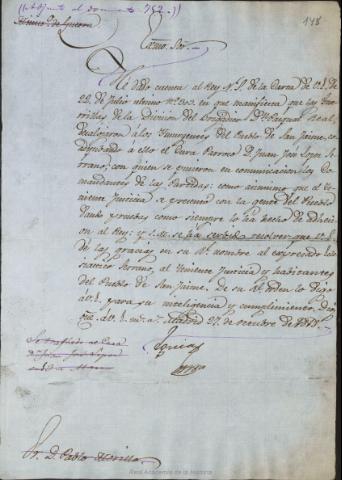 ((Adjunto al documento 752.))
148
Exmo. Sor.
He dado cuenta al Rey N. S. de la Carta de V. E. de
22 de Julio ultimo nº 203 en que manifiesta que las Guerrillas
de la Division del Brigadier Dn Pasqual Real,
desalojaron á los Insurgentes del Pueblo de San Jaime, co
á ello el Cura Parroco D. Juan José Lopez
con quien se pusieron en comunicacion los Co
mandantes de las Partidas: como asimismo que el te
niente Justicia se presentó con la gente del Pueblo
dando pruebas como siempre lo ha hecho de adhesion
al Rey: y S. M. se ha servido resolver que V. E.
dé las gracias en su Rl. nombre al expresado
al teniente Justicia y habitantes
del Pueblo de San Jaime. De su Rl. orden lo digo
á V. E. para su inteligencia y cumplimiento. Dios
gue. á V. E. ms. as. Madrid 27 de 1815.
Sr. D. Pablo Morillo
Real Academia de la Historia